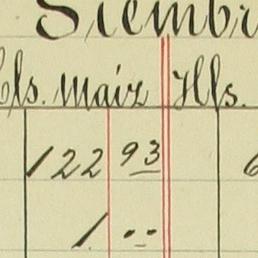 Siembr
Hls. Maiz Hls.
122 93 6
1 --